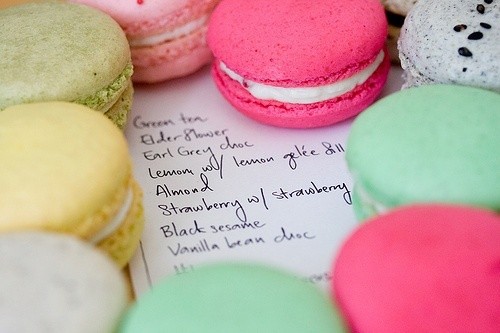 Green tea
Elderflower
Earl Grey choc
Lemon w/ lemon gelée fill
Almond
Strawberry w/ strawberry
Black sesame
Vanilla bean choc